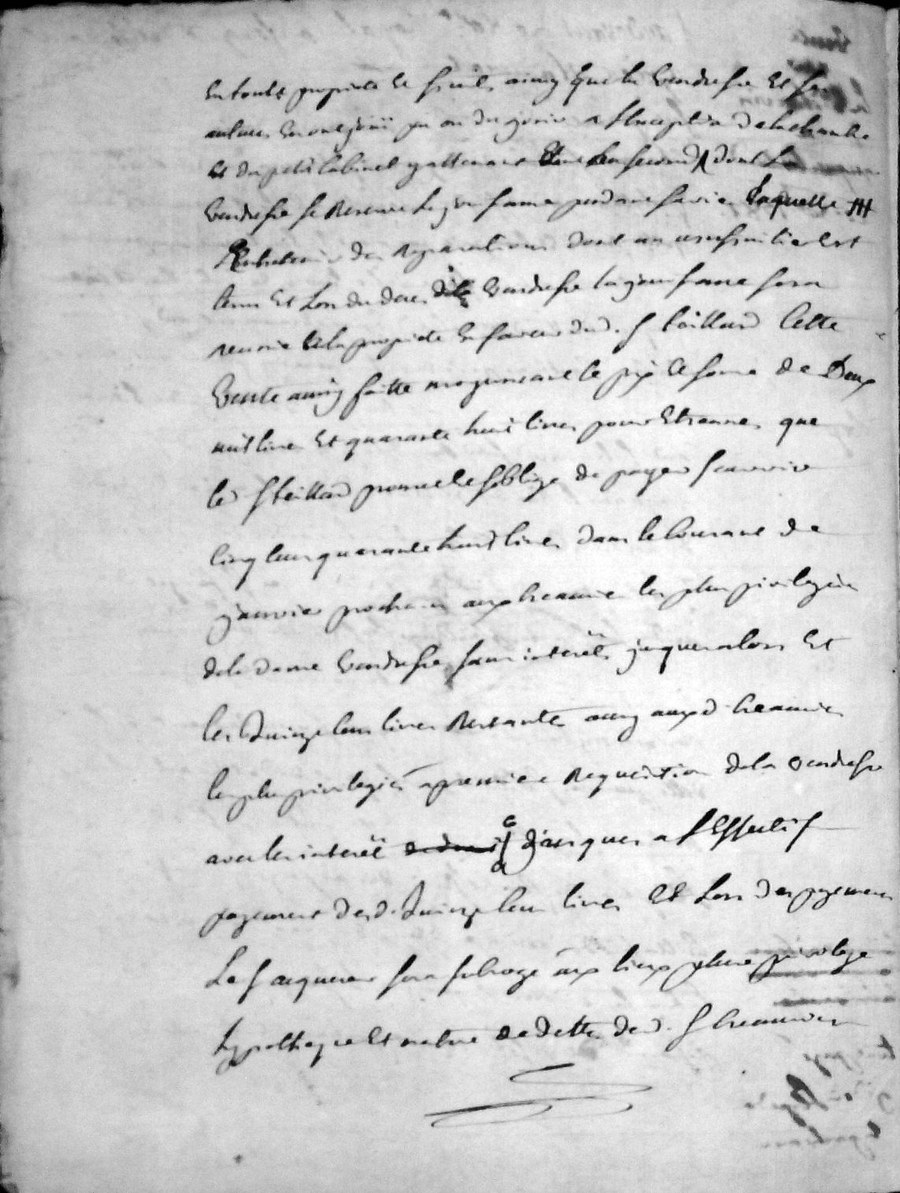 En toute propriété et fruits ainsy que la Venderesse et ses
auteurs en ont joui pu ou du jouir a l'Exception de la chambre
et du petit Cabinet y attenant au second dont la
Venderesse se Reserve la jouissance pendant sa vie laquelle
des Reparations dont un usufruitier est
tenu et Lors du deces de la Venderesse la jouissance sera
reunie a la propriété en faveur dud. S. Cette
Vente ainsy faitte moyennant le prix et somme de Deux
mil livres et quarante huit livres pour Etrennes que
led. S. promet et s'oblige de payer scavoir
Cinq Cens quarante huit livres dans le Courant de
janvier prochain aux Creanciers les plus privilegiés
de la dame Venderesse sans interêts jusqu'alors et
les Quinze Cens livres Restantes aussy auxd. Creanciers
les plus privilegiés a premiere Requisition de la Venderesse
avec les interêts jusques a l'Effectif
payement desd. Quinze Cens livres et Lors des payemens
Le S. acquereur sera subrogé aux lieux place privilege
hypotheque et nature de dette desd. S. Creanciers